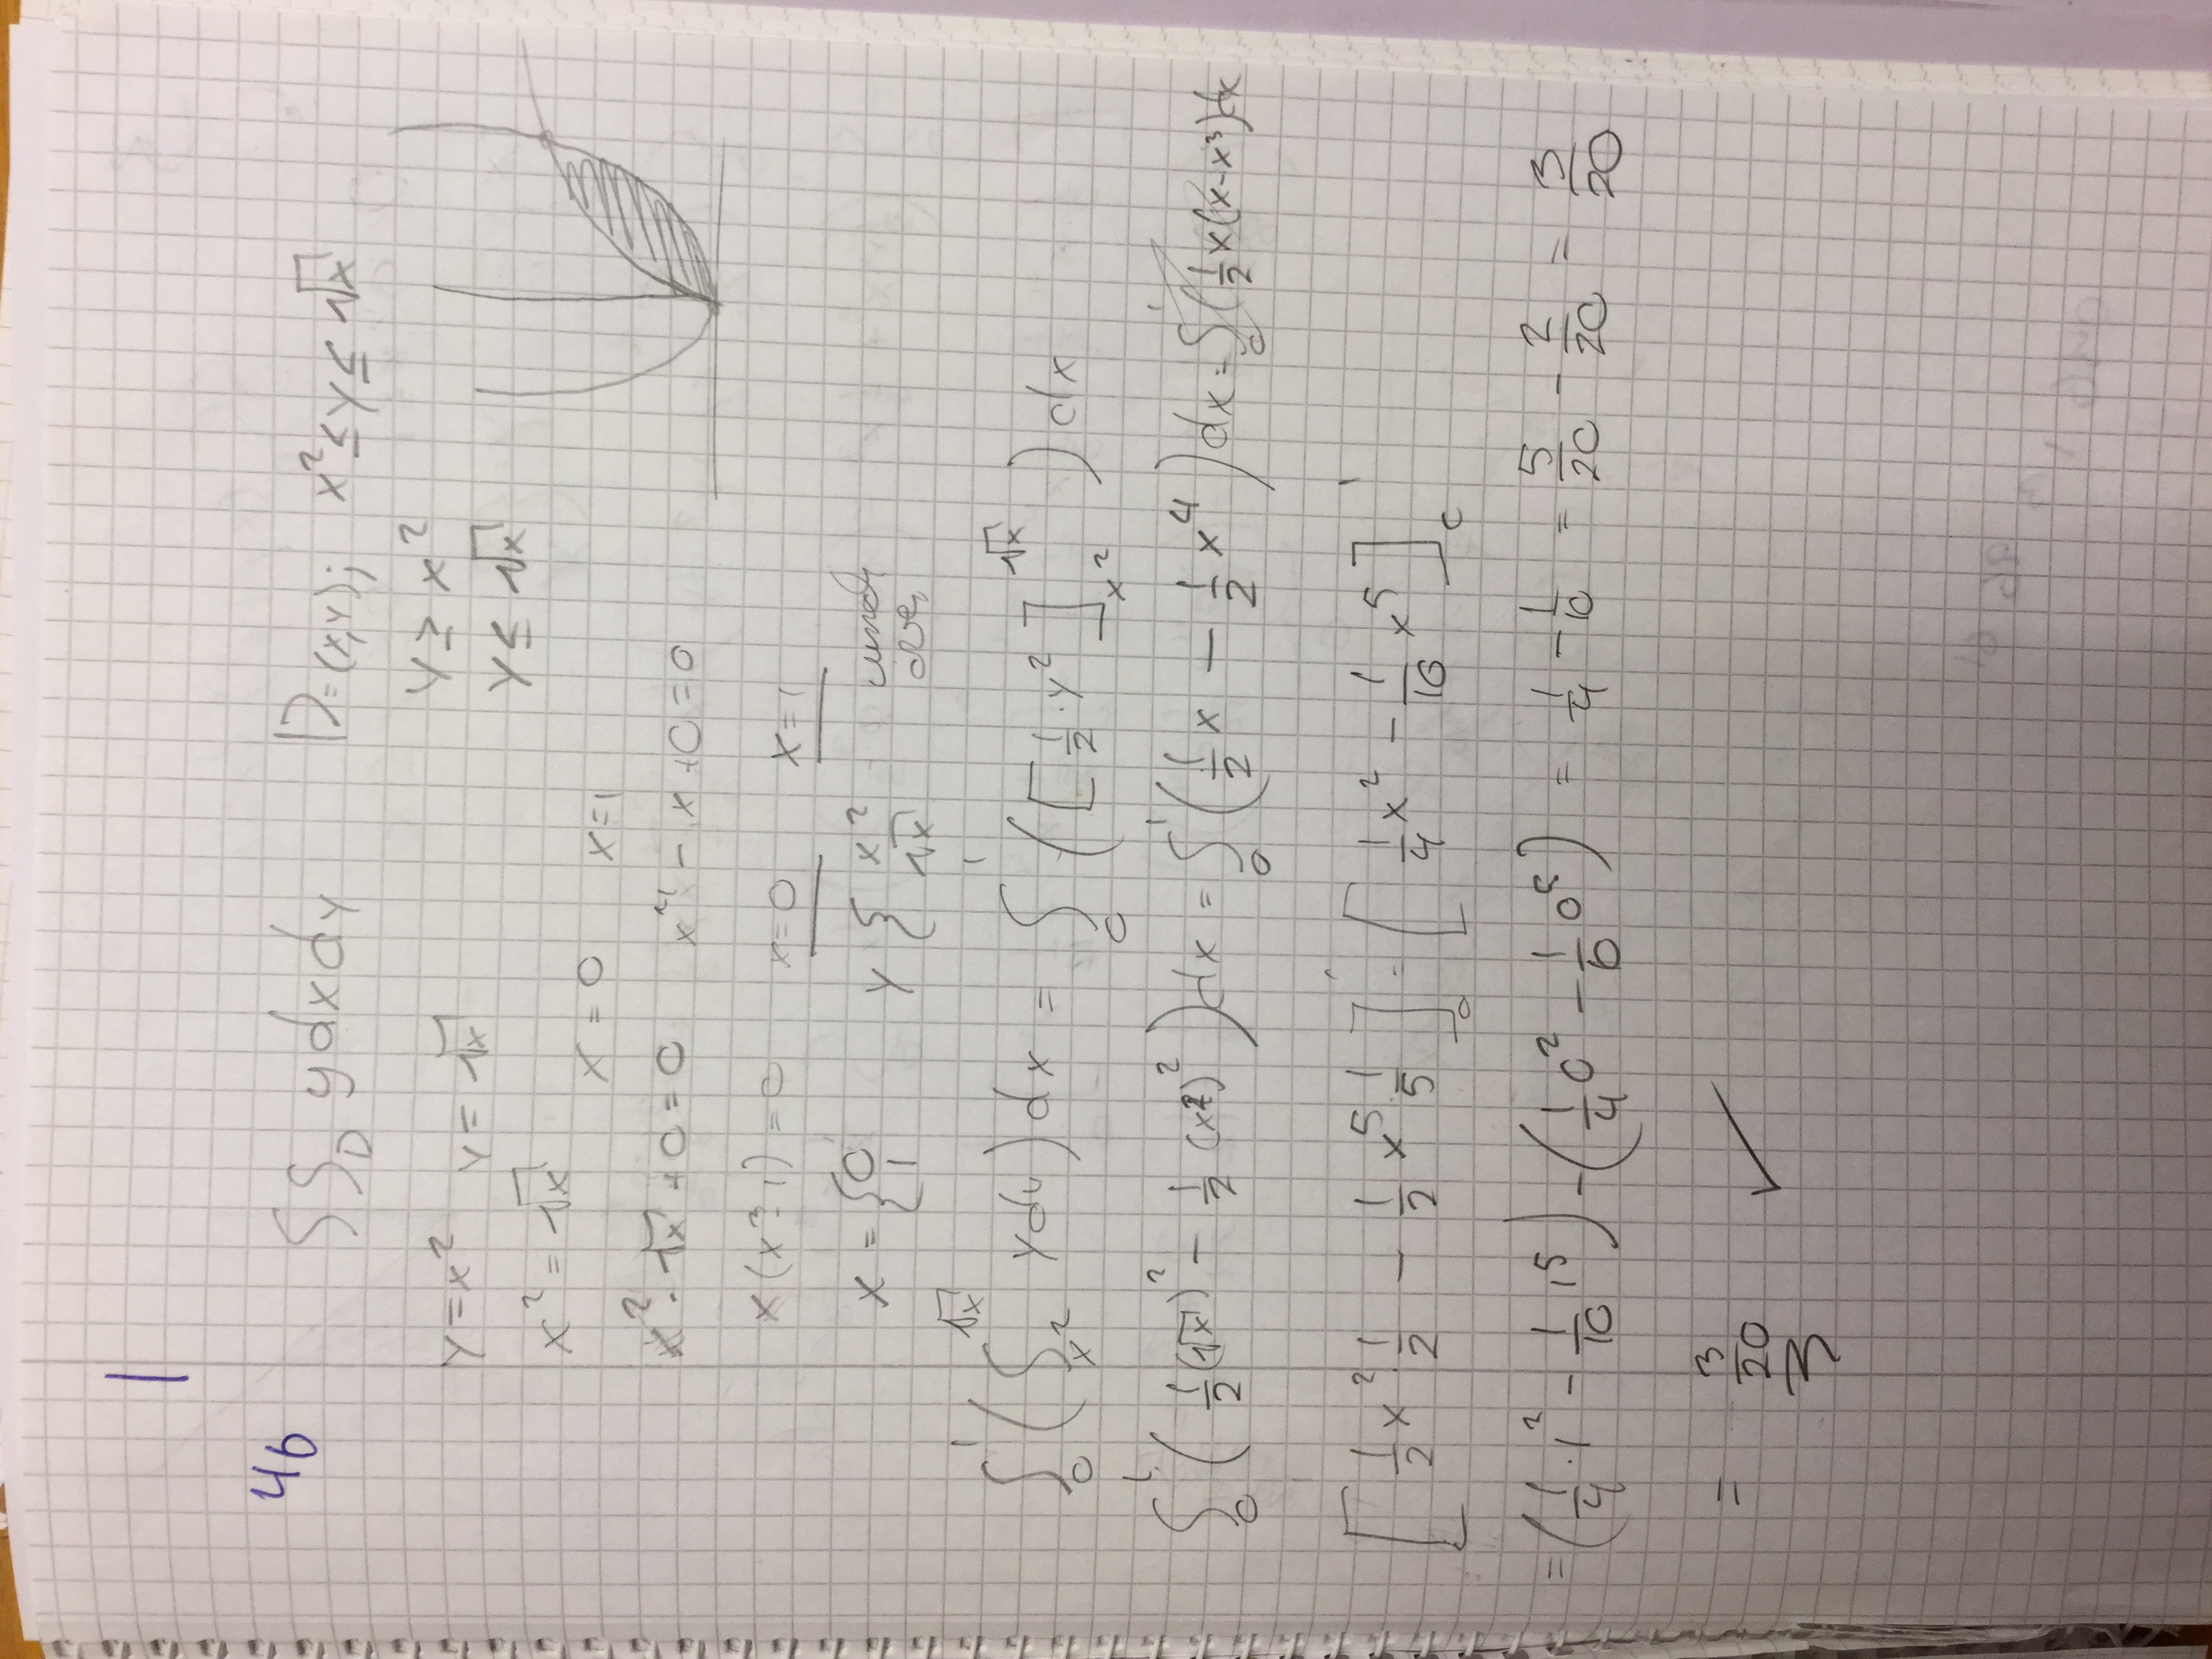 1
46
∫∫_D y dx dy    D = (x,y); x² ≤ y ≤ √x
y ≥ x²
y = x²  y = √x
y ≤ √x
x² = √x
x = 0  x = 1
x² - √x + 0 = 0  x⁴ - x + 0 = 0
x(x³-1) = 0  x=0  x=1
x = {0 1  y { x² √x  und öve
∫₀¹ ( ∫_{x²}^{√x} y dy ) dx = ∫₀¹ ( [ 1/2 · y² ]_{x²}^{√x} ) dx
∫₀¹ ( 1/2 (√x)² - 1/2 (x²)² ) dx = ∫₀¹ ( 1/2 x - 1/2 x⁴ ) dx = ∫₀¹ ( 1/2 x(x-x³) dx
[ 1/2 x² · 1/2 - 1/2 x⁵ · 1/5 ]₀¹ = [ 1/4 x² - 1/10 x⁵ ]₀¹
= ( 1/4 · 1² - 1/10 1⁵ ) - ( 1/4 0² - 1/10 0⁵ ) = 1/4 - 1/10 = 5/20 - 2/20 = 3/20
= 3/20 ✓